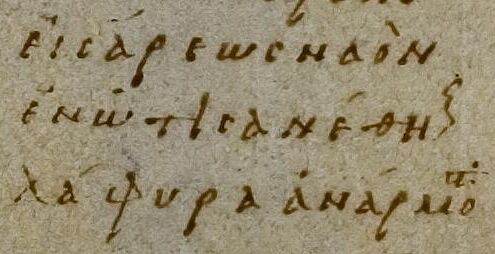 εἰς ἄρεως ναὸν
ἐν ὧ τὶς ἀνέθη
λάφυρα ἀνάρμο